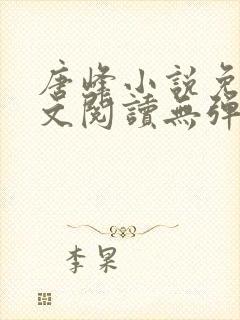 唐峰小説免
文閱讀無彈
李杲